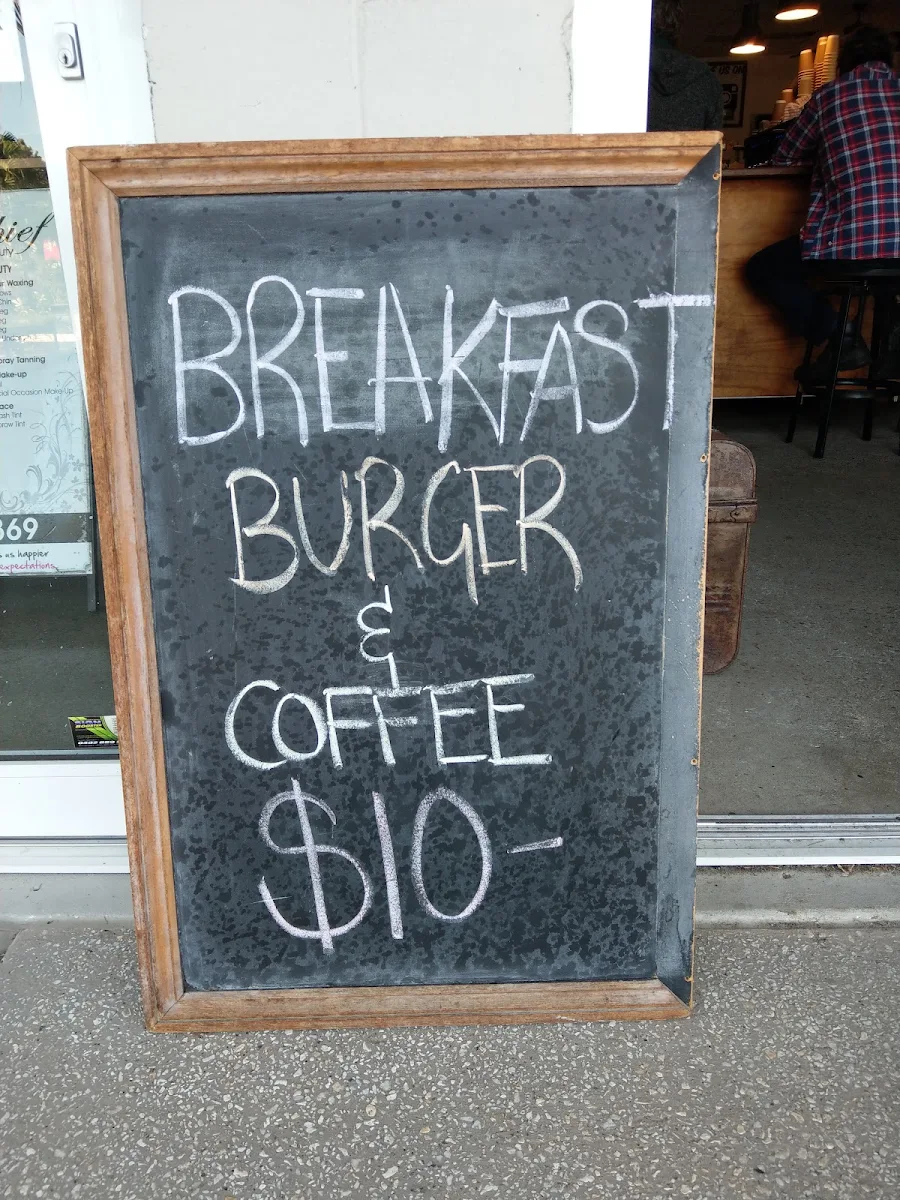 BREAKFAST
BURGER
&
COFFEE
$10-
hief
UTY
r Waxing
pray Tanning
ake-up
ial Occasion Make-Up
ace
ash Tint
row Tint
369
s us happier
expectations